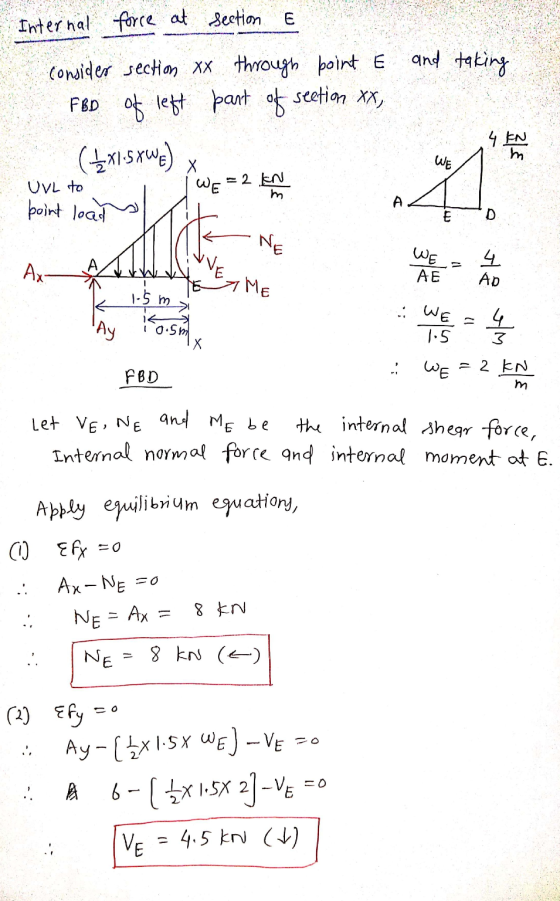 Internal force at section E
Consider section XX through point E and taking
FBD of left part of section XX,
(1/2 × 1.5 × WE)
X
WE = 2 kN/m
UVL to
point load
NE
VE
A
Ax
E
ME
1.5 m
Ay
0.5m
X
FBD
4 kN/m
WE
A
E
D
WE/AE = 4/AD
∴ WE/1.5 = 4/3
∴ WE = 2 kN/m
Let VE, NE and ME be the internal shear force,
Internal normal force and internal moment at E.
Apply equilibrium equations,
(1) Σfx = 0
∴ Ax - NE = 0
∴ NE = Ax = 8 kN
∴ NE = 8 kN (←)
(2) Σfy = 0
∴ Ay - [1/2 × 1.5 × WE] - VE = 0
∴ 6 - [1/2 × 1.5 × 2] - VE = 0
∴ VE = 4.5 kN (↓)